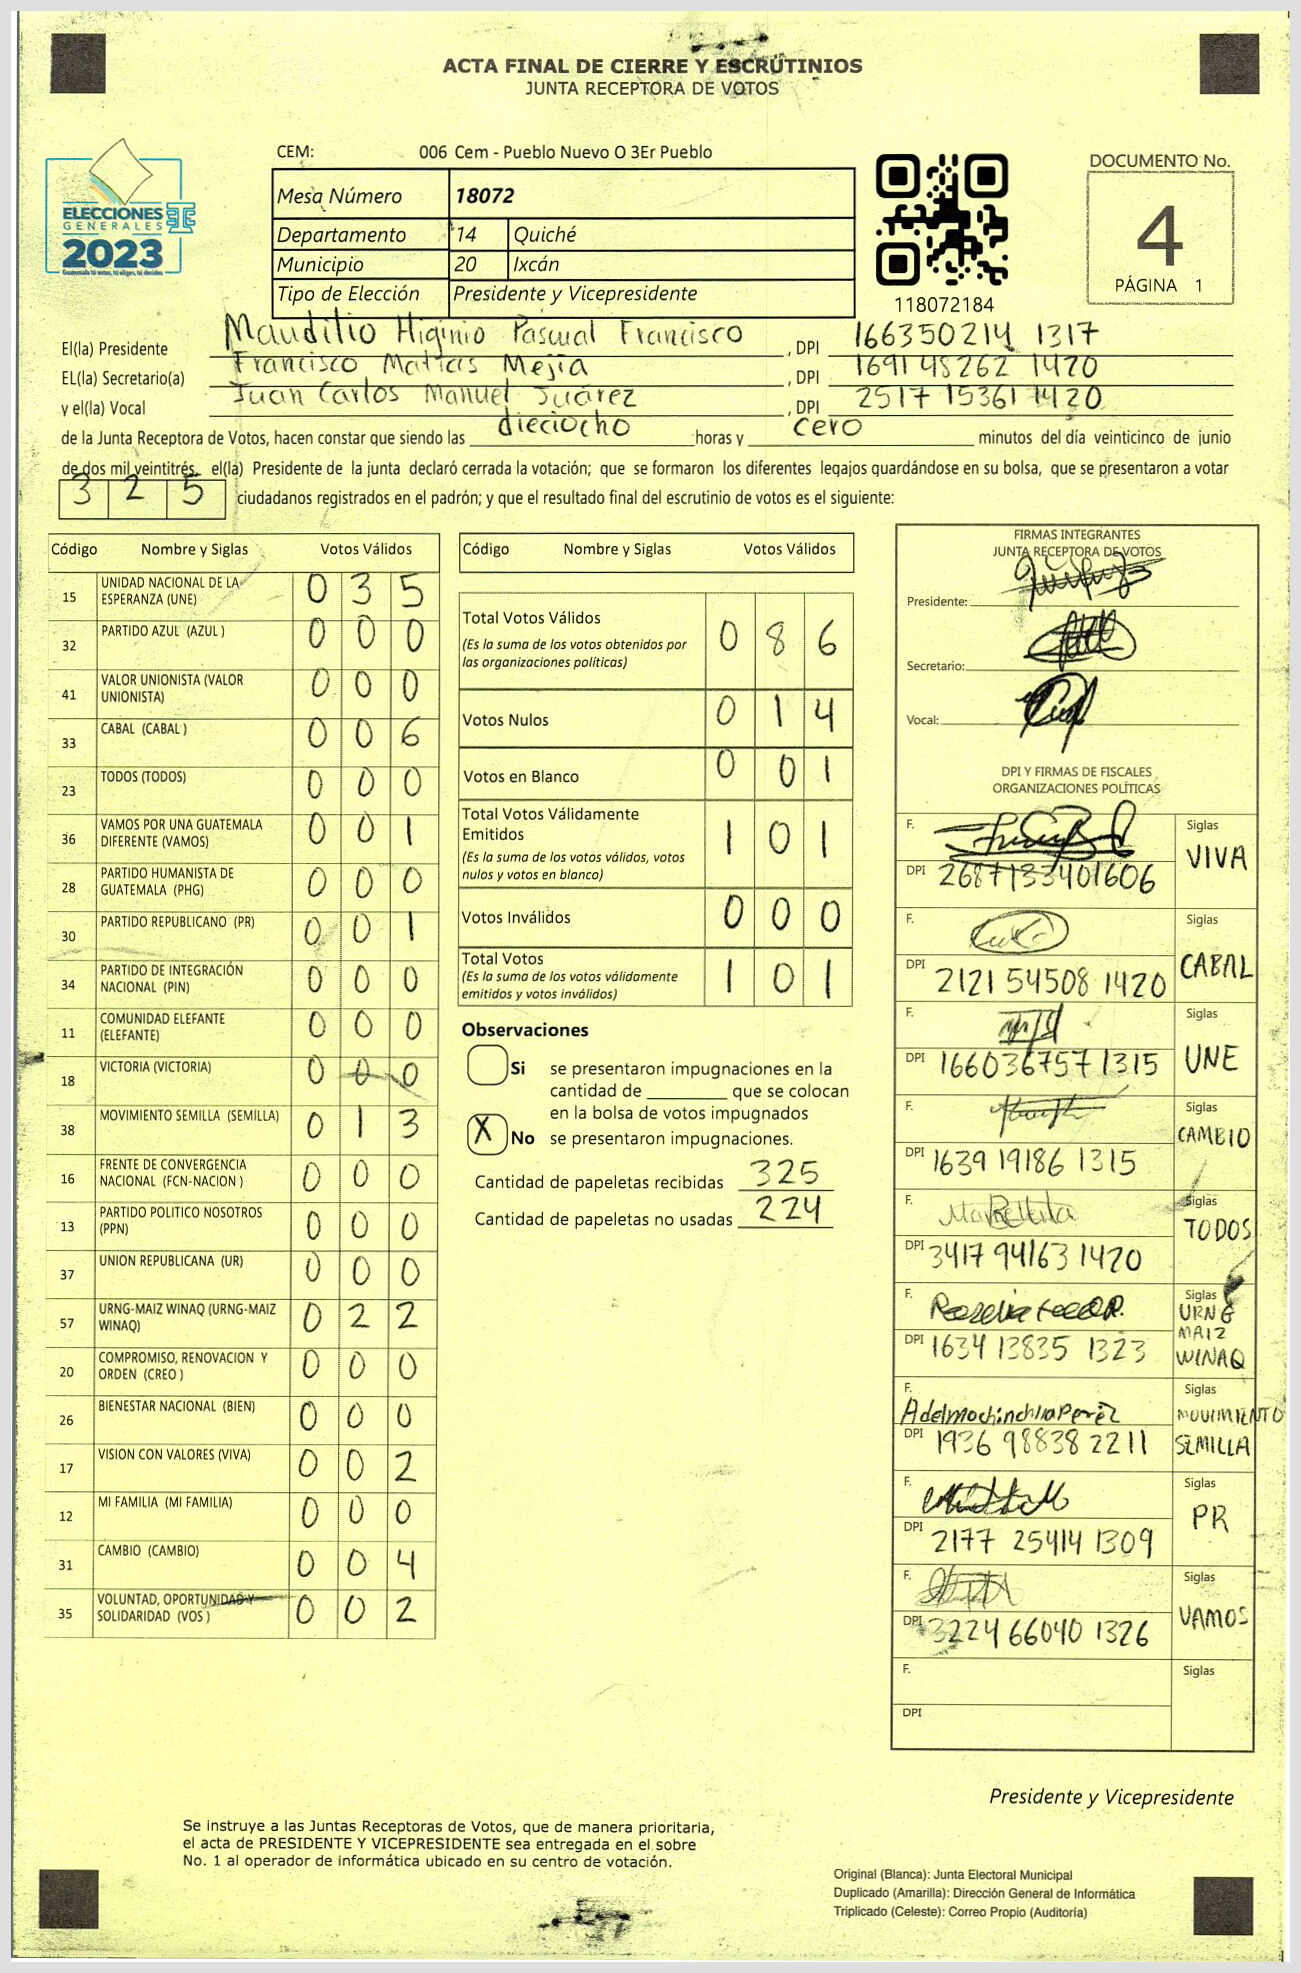 ACTA FINAL DE CIERRE Y ESCRUTINIOS
JUNTA RECEPTORA DE VOTOS
ELECCIONES
GENERALES
2023
CEM: 006 Cem - Pueblo Nuevo O 3Er Pueblo
Mesa Número 18072
Departamento 14 Quiché
Municipio 20 Ixcán
Tipo de Elección Presidente y Vicepresidente
118072184
DOCUMENTO No.
4
PÁGINA 1
El(la) Presidente Maudilio Higinio Pascual Francisco , DPI 166350214 1317
EL(la) Secretario(a) Francisco Matias Mejía , DPI 1691 48262 1420
y el(la) Vocal Juan Carlos Manuel Juárez , DPI 2517 15361 1420
de la Junta Receptora de Votos, hacen constar que siendo las dieciocho horas y cero minutos del día veinticinco de junio
de dos mil veintitrés, el(la) Presidente de la junta declaró cerrada la votación; que se formaron los diferentes legajos guardándose en su bolsa, que se presentaron a votar
325 ciudadanos registrados en el padrón; y que el resultado final del escrutinio de votos es el siguiente:
Código Nombre y Siglas Votos Válidos
15 UNIDAD NACIONAL DE LA ESPERANZA (UNE) 0 3 5
32 PARTIDO AZUL (AZUL ) 0 0 0
41 VALOR UNIONISTA (VALOR UNIONISTA) 0 0 0
33 CABAL (CABAL ) 0 0 6
23 TODOS (TODOS) 0 0 0
36 VAMOS POR UNA GUATEMALA DIFERENTE (VAMOS) 0 0 1
28 PARTIDO HUMANISTA DE GUATEMALA (PHG) 0 0 0
30 PARTIDO REPUBLICANO (PR) 0 0 1
34 PARTIDO DE INTEGRACIÓN NACIONAL (PIN) 0 0 0
11 COMUNIDAD ELEFANTE (ELEFANTE) 0 0 0
18 VICTORIA (VICTORIA) 0 0 0
38 MOVIMIENTO SEMILLA (SEMILLA) 0 1 3
16 FRENTE DE CONVERGENCIA NACIONAL (FCN-NACION ) 0 0 0
13 PARTIDO POLITICO NOSOTROS (PPN) 0 0 0
37 UNION REPUBLICANA (UR) 0 0 0
57 URNG-MAIZ WINAQ (URNG-MAIZ WINAQ) 0 2 2
20 COMPROMISO, RENOVACION Y ORDEN (CREO ) 0 0 0
26 BIENESTAR NACIONAL (BIEN) 0 0 0
17 VISION CON VALORES (VIVA) 0 0 2
12 MI FAMILIA (MI FAMILIA) 0 0 0
31 CAMBIO (CAMBIO) 0 0 4
35 VOLUNTAD, OPORTUNIDAD Y SOLIDARIDAD (VOS ) 0 0 2
Código Nombre y Siglas Votos Válidos
Total Votos Válidos 0 8 6
(Es la suma de los votos obtenidos por
las organizaciones políticas)
Votos Nulos 0 1 4
Votos en Blanco 0 0 1
Total Votos Válidamente
Emitidos 1 0 1
(Es la suma de los votos válidos, votos
nulos y votos en blanco)
Votos Inválidos 0 0 0
Total Votos 1 0 1
(Es la suma de los votos válidamente
emitidos y votos inválidos)
Observaciones
Si se presentaron impugnaciones en la
cantidad de ________ que se colocan
en la bolsa de votos impugnados
X No se presentaron impugnaciones.
Cantidad de papeletas recibidas 325
Cantidad de papeletas no usadas 224
FIRMAS INTEGRANTES
JUNTA RECEPTORA DE VOTOS
Presidente:
Secretario:
Vocal:
DPI Y FIRMAS DE FISCALES
ORGANIZACIONES POLÍTICAS
F. Siglas VIVA
DPI 2687133401606
F. Siglas CABAL
DPI 2121 54508 1420
F. Siglas UNE
DPI 1660367571315
F. Siglas CAMBIO
DPI 1639 19186 1315
F. Siglas TODOS
DPI 3417 94163 1420
F. Siglas URNG MAIZ WINAQ
DPI 1634 13835 1323
F. Siglas MOVIMIENTO SEMILLA
DPI 1936 98838 2211
F. Siglas PR
DPI 2177 25414 1309
F. Siglas VAMOS
DPI 3224 66040 1326
F. Siglas
DPI
Presidente y Vicepresidente
Se instruye a las Juntas Receptoras de Votos, que de manera prioritaria,
el acta de PRESIDENTE Y VICEPRESIDENTE sea entregada en el sobre
No. 1 al operador de informática ubicado en su centro de votación.
Original (Blanca): Junta Electoral Municipal
Duplicado (Amarilla): Dirección General de Informática
Triplicado (Celeste): Correo Propio (Auditoría)